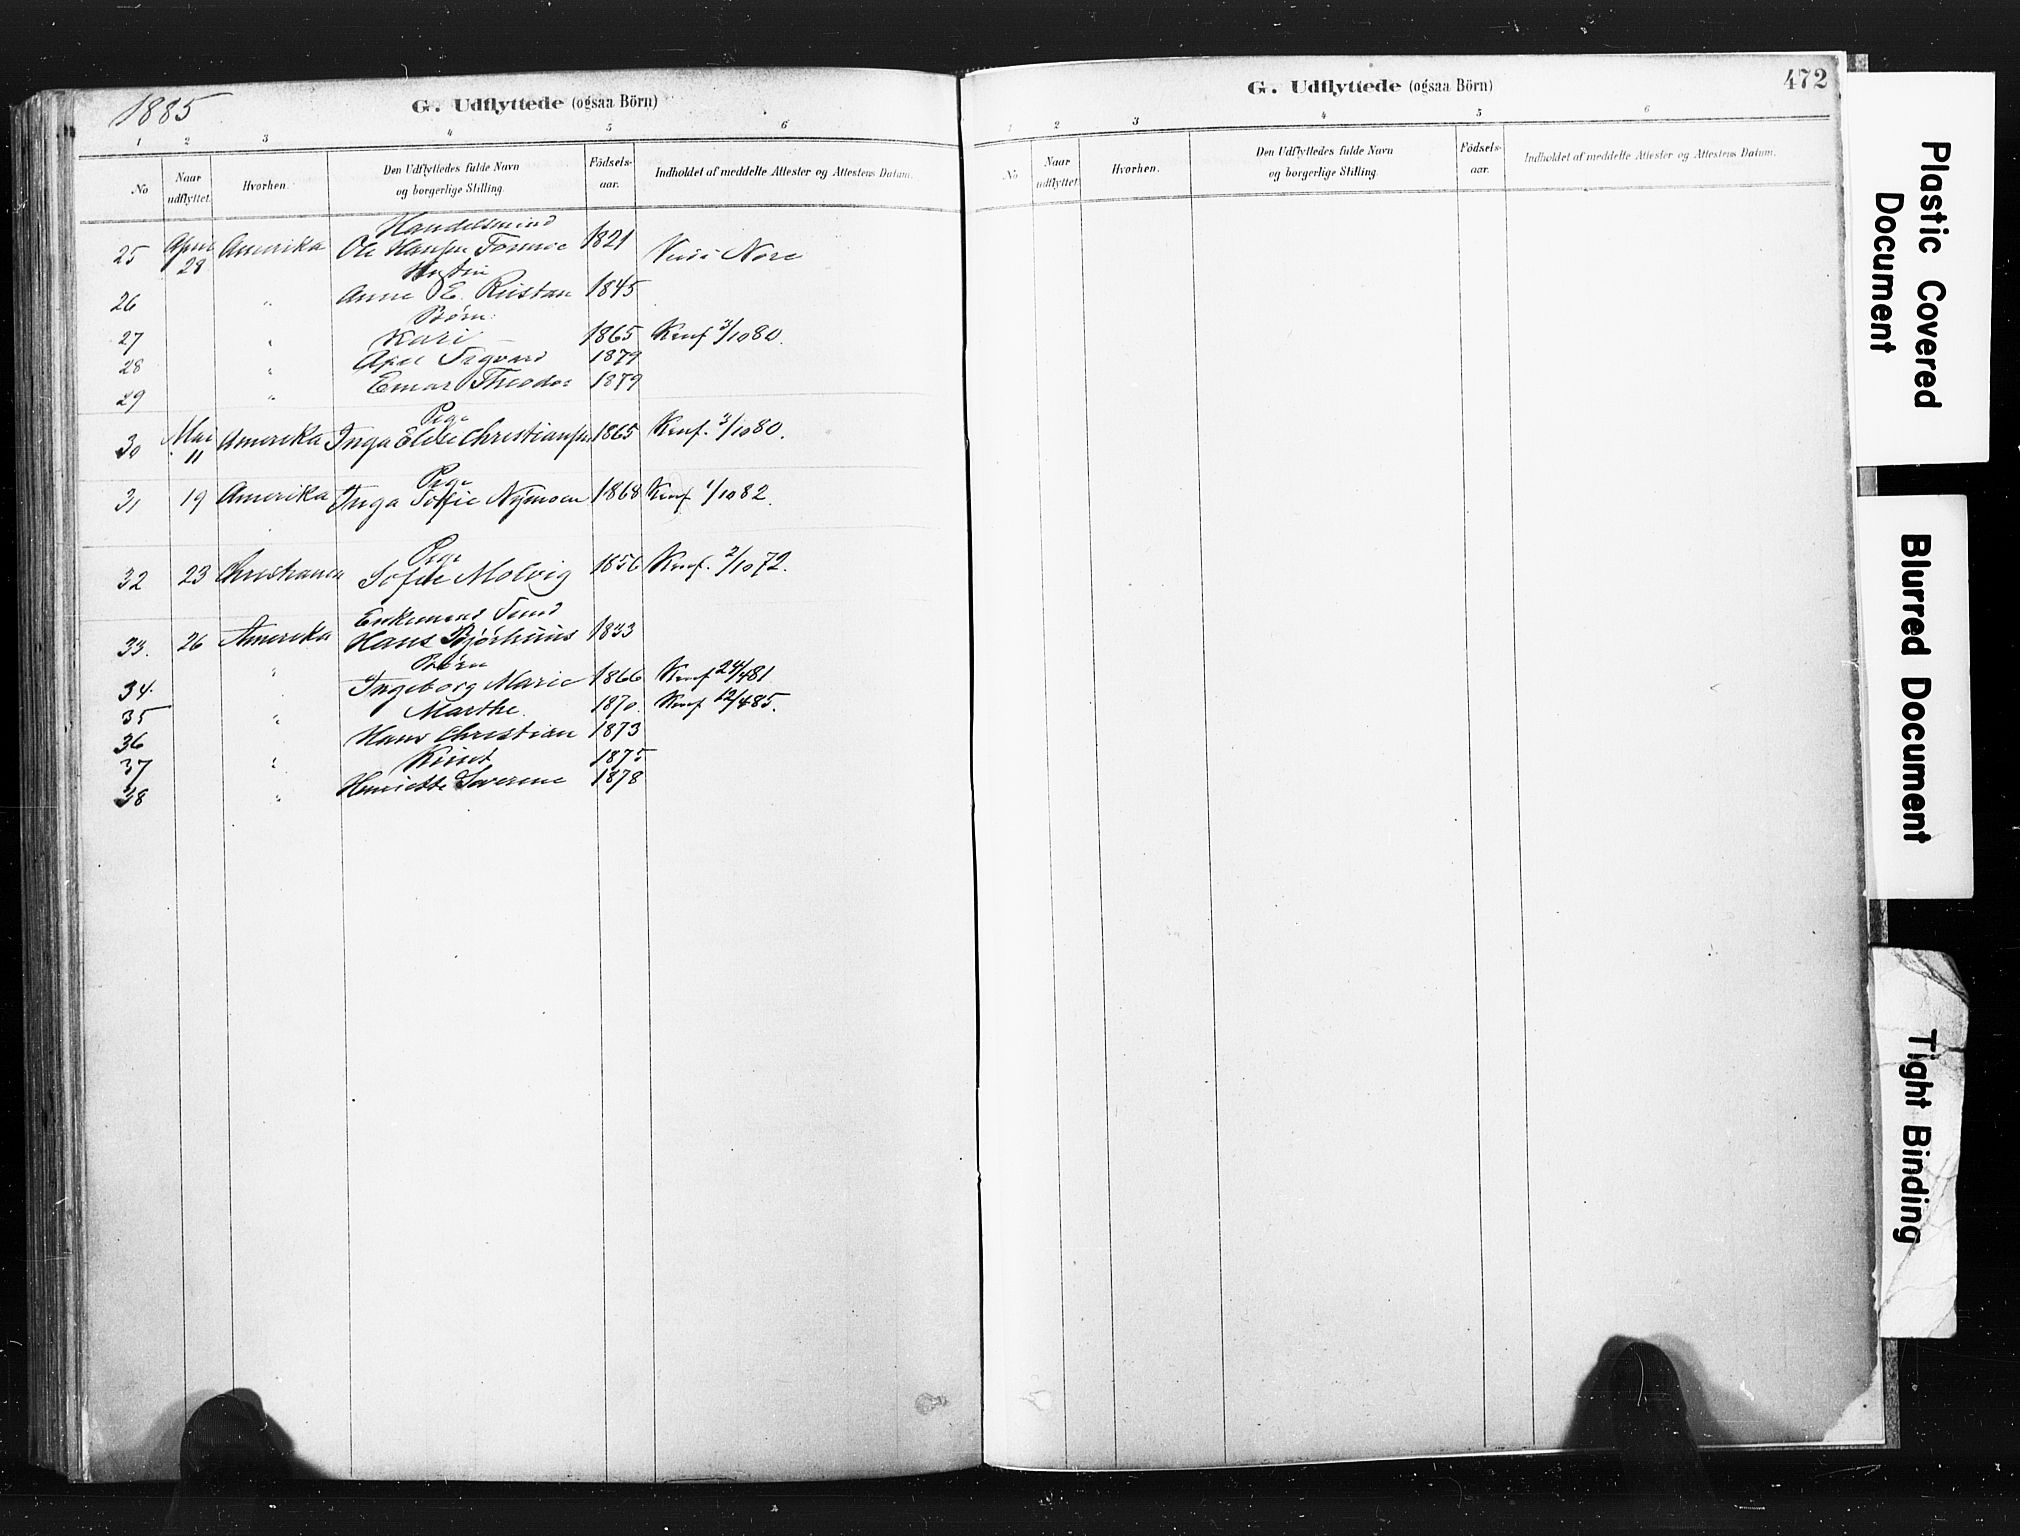 1885
G. Udflyttede (ogsaa Börn)
1 2 3 4 5 6
No Naar udflyttet. Hvorhen. Den Udflyttedes fulde Navn og borgerlige Stilling. Födsels-aar. Indholdet af meddelte Attester og Attestens Datum.
Handelsmand
25 April 28 Amerika Ole Hansen 1821 Nore
Hustru
26 " Anne E. Rustan 1845
Börn:
27 " Kari 1865 Konf 3/10 80.
28 " Axel Sigvard 1879
29 " Einar Theodor 1879
Pige
30 Mai 11 Amerika Inga Elise Christiansen 1865 Konf. 3/10 80.
Pige
31 19 Amerika Inga Sofie Nymoen 1868 Konf 1/10 82.
Pige
32 23 Christiania Sofie Molvig 1856 Konf. 2/10 72.
Enkemand
33. 26 Amerika Hans Bjørhuus 1833
Börn
34. " Ingeborg Marie 1866 Konf 24/4 81
35 " Marthe 1870. Konf 12/4 85.
36 Hans Christian 1873
37 " Knud 1875
38 " Henriette Severine 1878
G. Udflyttede (ogsaa Börn)
472
1 2 3 4 5 6
No Naar udflyttet. Hvorhen. Den Udflyttedes fulde Navn og borgerlige Stilling. Födsels-aar. Indholdet af meddelte Attester og Attestens Datum.
Plastic Covered
Document
Blurred Document
Tight Binding